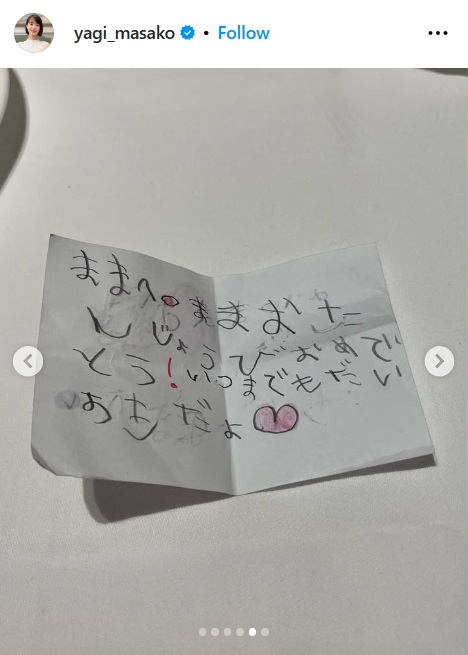 yagi_masako • Follow
ままへ
ままおた
んじょうびおめで
とう!いつまでもだい
だよ